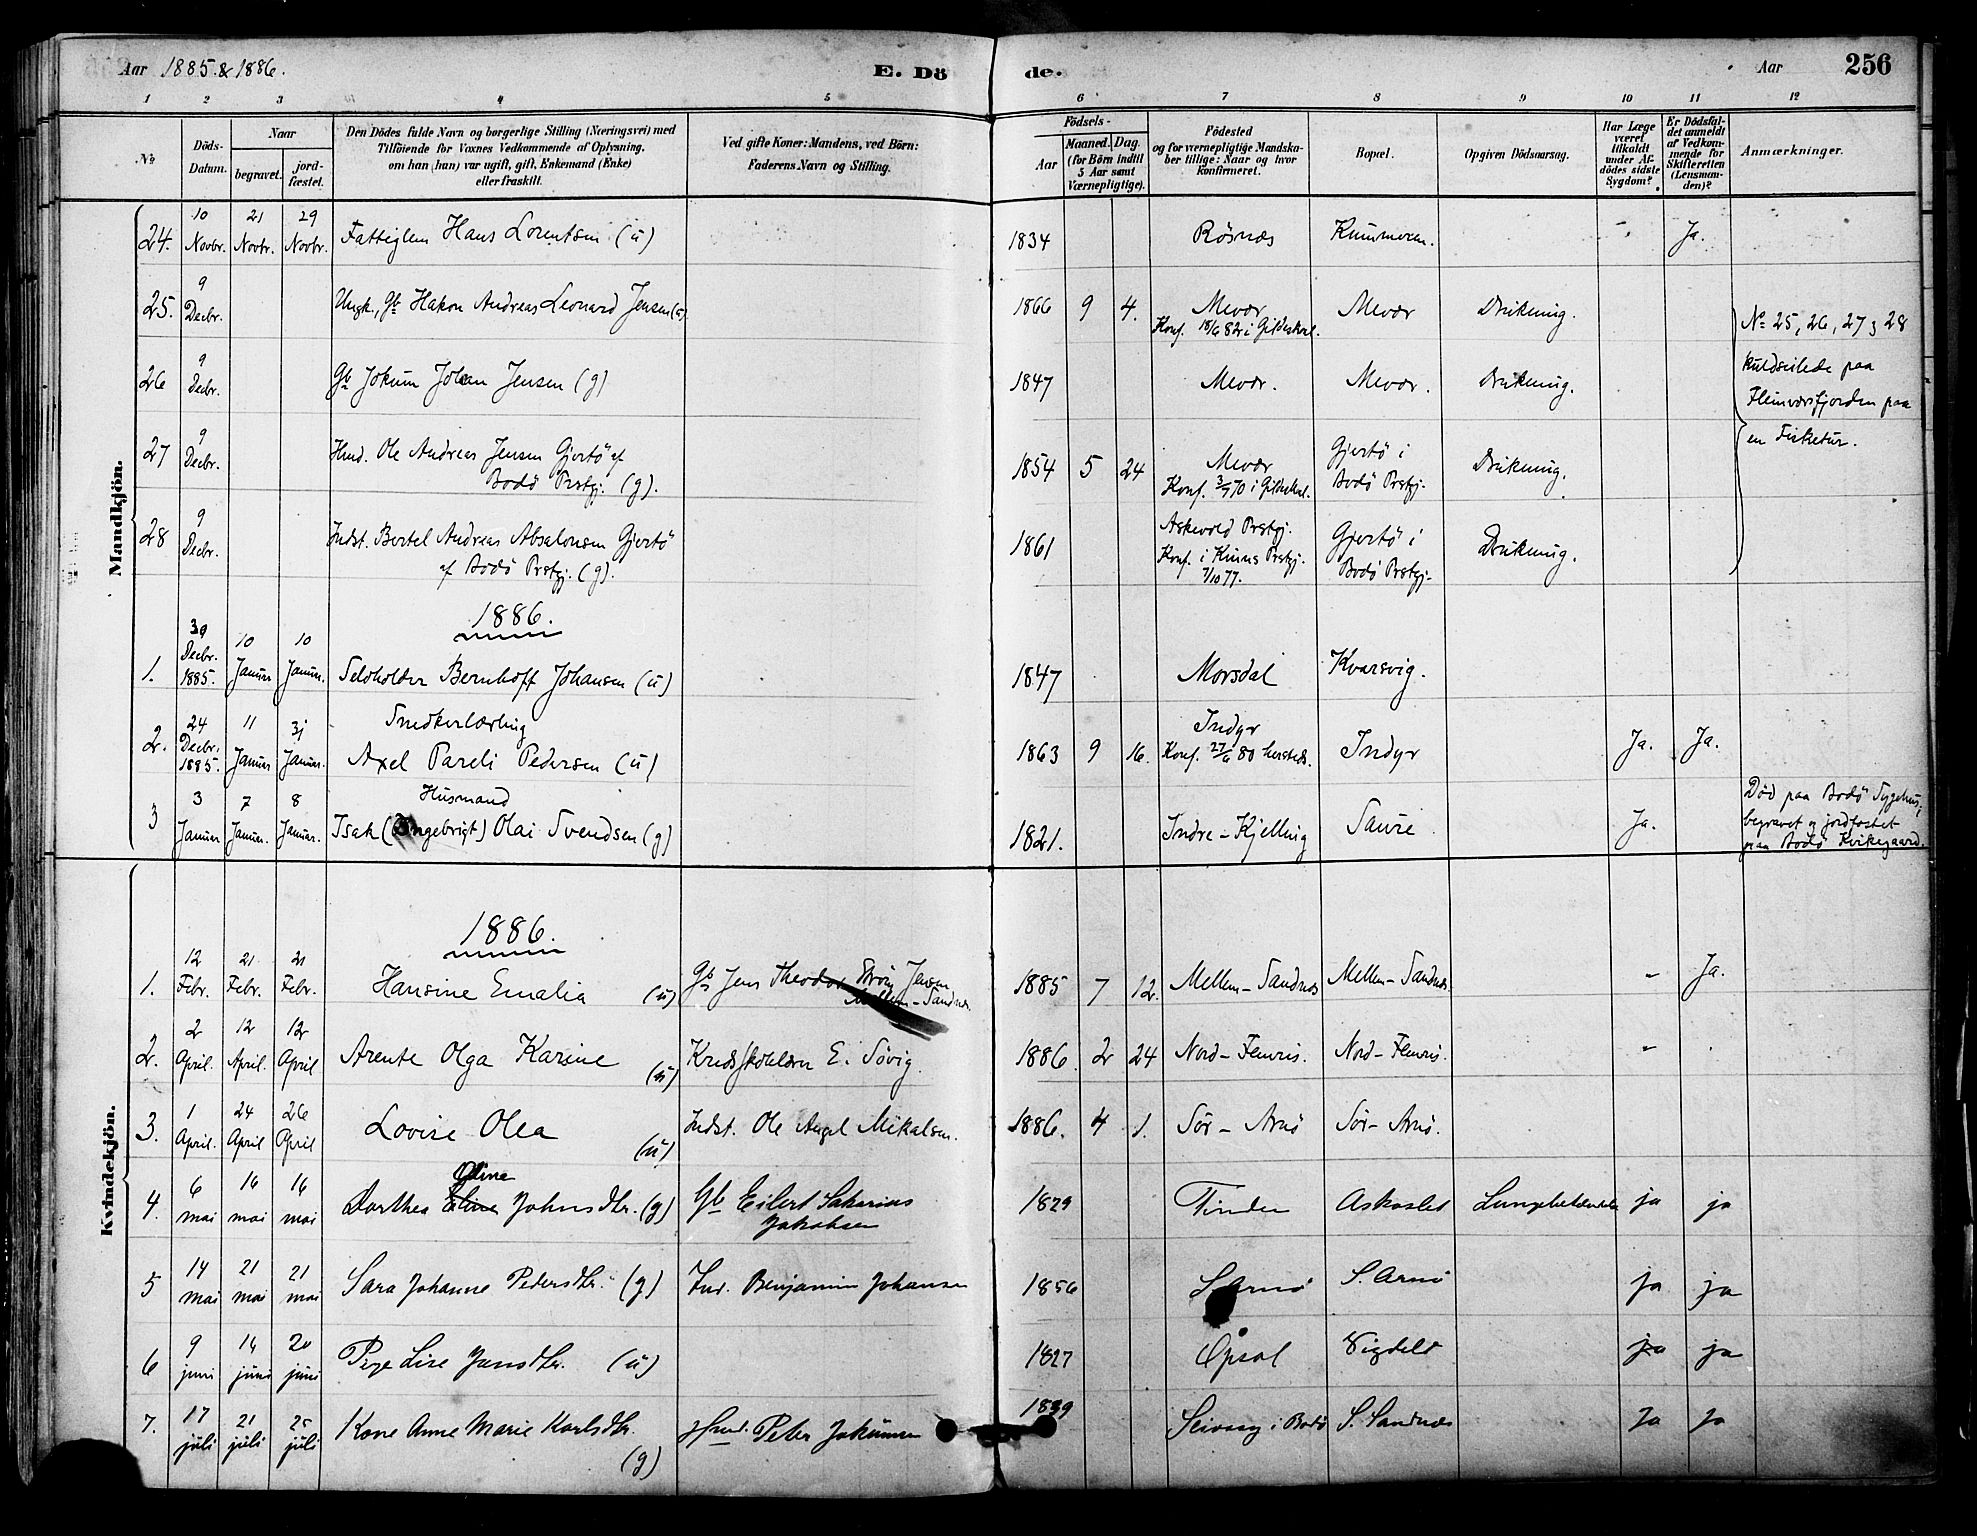 Aar 1885 & 1886. E. Dö de. Aar 256
1 2 3 4 5 6 7 8 9 10 11 12
No
Döds-Datum.
Naar
begravet. jord-fæstet.
Den Dödes fulde Navn og borgerlige Stilling (Næringsvei) med
Tilföiende for Voxnes Vedkommende af Oplysning,
om han (hun) var ugift, gift, Enkemand (Enke)
eller fraskilt.
Ved gifte Koner: Mandens, ved Börn:
Faderens Navn og Stilling.
Födsels-
Aar Maaned. Dag.
(for Börn indtil
5 Aar samt
Værnepligtige).
Födested
og for værnepligtige Mandska-
ber tillige: Naar og hvor
konfirmeret.
Bopæl.
Opgiven Dödsaarsag.
Har Læge
været
tilkaldt
under Af-
dödes sidste
Sygdom?
Er Dödsfal-
det anmeldt
af Vedkom-
mende for
Skifteretten
(Lensman-
den)?
Anmærkninger.
Mandkjön.
24. 10 Novbr. 21 Novbr. 29 Novbr. Fattiglem Hans Lorentsen (u) 1834 Røsnæs Ja.
25. 9 Decbr. Ungk., Gb Hakon Andreas Leonard Jensen (u) 1866 9 4. Mevær
Konf. 18/6 82 i Gildeskaal. Mevær Drukning.
26 9 Decbr. Gb Jokum Johan Jensen (g) 1847 Mevær. Mevær. Drukning.
27 9 Decbr. Hmd. Ole Andreas Jensen Gjertö af
Bodö Prstgj. (g). 1854 5 24 Mevær
Konf. 3/7 70 i Gildeskaal. Gjertö i
Bodö Prstgj. Drukning.
28 9 Decbr. Indst. Bertel Andreas Absalonsen Gjertö
af Bodö Prstgj. (g). 1861 Askevold Prstgj.
Konf. i Kinns Prstgj.
7/10 77. Gjertö i
Bodö Prstgj. Drukning.
No 25, 26, 27 & 28
kuldseilede paa
Fleinværsfjorden paa
en Fisketur.
1886.
1. 30 Decbr. 1885. 10 Januar 10 Januar. Bernhoff Johansen (u) 1847 Morsdal Kvarsvig.
2. 24 Decbr. 1885. 11 Januar 31 Januar. Snedkerlærling
Axel Pareli Pedersen (u) 1863 9 16. Indyr
Konf. 27/6 80 hersteds. Indyr Ja. Ja.
3 3 Januar 7 Januar. 8 Januar. Husmand
Isak (Ingebrigt) Olai Svendsen (g) 1821. Indre-Kjelling Saure. Ja. Död paa Bodö Sygehus,
begravet og jordfæstet
paa Bodö Kirkegaard.
Kvindekjön.
1886.
1. 12 Febr. 21 Febr. 21 Febr. Hansine Emalia (u) Gb Jens Theodor Ström Jensen
Mellem-Sandnæs. 1885 7 12. Mellem-Sandnæs Mellem-Sandnæs. - Ja.
2. 2 April. 12 April. 12 April Arente Olga Karine (u) E. Sövig. 1886. 2 24 Nord-Fleuris. Nord-Fleuris. -
3. 1 April. 24 April 26 April Lovise Olea (u) Indst. Ole Angel Mikalsen. 1886. 4 1. Sör-Arnö Sör-Arnö.
4. 6 mai 16 mai 16 mai Oline
Dorthea Eline Johnsdtr. (g) Gb Eilert Sakarias
Jakobsen 1829 Tinden ja ja
5 14 mai 21 mai 21 mai Sara Johanne Pedersdtr. (g) Benjamin Johansen 1856 S. Arnö S. Arnö ja ja
6 9 juni 14 juni 20 juni Pige Lise Jansdtr. (u) 1827 Opsal Vigdelt ja ja
7. 17 juli 21 juli 25 juli Kone Anne Marie Karlsdtr.
(g) Hmd. Peter Jokumsen 1839 Seivaag i Bodö S. Sandnæs Ja Ja